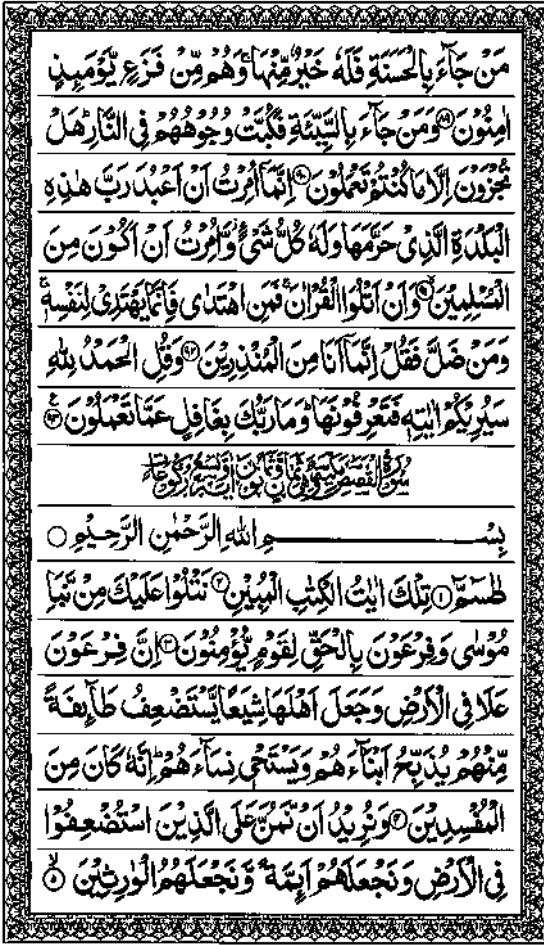 مَنْ جَآءَ بِالْحَسَنَةِ فَلَهٗ خَيْرٌ مِّنْهَا ۚ وَهُمْ مِّنْ فَزَعٍ يَّوْمَىِٕذٍ
اٰمِنُوْنَ ﴿۸۹﴾ وَمَنْ جَآءَ بِالسَّيِّئَةِ فَكُبَّتْ وُجُوْهُهُمْ فِى النَّارِ ؕ هَلْ
تُجْزَوْنَ اِلَّا مَا كُنْتُمْ تَعْمَلُوْنَ ﴿۹۰﴾ اِنَّمَاۤ اُمِرْتُ اَنْ اَعْبُدَ رَبَّ هٰذِهِ
الْبَلْدَةِ الَّذِىْ حَرَّمَهَا وَلَهٗ كُلُّ شَىْءٍ ۫ وَّاُمِرْتُ اَنْ اَكُوْنَ مِنَ
الْمُسْلِمِيْنَ ۙ﴿۹۱﴾ وَاَنْ اَتْلُوَا الْقُرْاٰنَ ۚ فَمَنِ اهْتَدٰى فَاِنَّمَا يَهْتَدِىْ لِنَفْسِهٖ ۚ
وَمَنْ ضَلَّ فَقُلْ اِنَّمَاۤ اَنَا مِنَ الْمُنْذِرِيْنَ ﴿۹۲﴾ وَقُلِ الْحَمْدُ لِلّٰهِ
سَيُرِيْكُمْ اٰيٰتِهٖ فَتَعْرِفُوْنَهَا ؕ وَمَا رَبُّكَ بِغَافِلٍ عَمَّا تَعْمَلُوْنَ ﴿۹۳﴾ ع
سُوْرَةُ الْقَصَصِ مَكِّيَّةٌ وَّهِىَ ثَمَانٌ وَّثَمَانُوْنَ اٰيَةً وَّتِسْعُ رُكُوْعَاتٍ
بِسْمِ اللهِ الرَّحْمٰنِ الرَّحِيْمِ ○
طٰسٓمّٓ ﴿۱﴾ تِلْكَ اٰيٰتُ الْكِتٰبِ الْمُبِيْنِ ﴿۲﴾ نَتْلُوْا عَلَيْكَ مِنْ نَّبَاِ
مُوْسٰى وَفِرْعَوْنَ بِالْحَقِّ لِقَوْمٍ يُّؤْمِنُوْنَ ﴿۳﴾ اِنَّ فِرْعَوْنَ
عَلَا فِى الْاَرْضِ وَجَعَلَ اَهْلَهَا شِيَعًا يَّسْتَضْعِفُ طَآىِٕفَةً
مِّنْهُمْ يُذَبِّحُ اَبْنَآءَهُمْ وَيَسْتَحْىٖ نِسَآءَهُمْ ؕ اِنَّهٗ كَانَ مِنَ
الْمُفْسِدِيْنَ ﴿۴﴾ وَنُرِيْدُ اَنْ نَّمُنَّ عَلَى الَّذِيْنَ اسْتُضْعِفُوْا
فِى الْاَرْضِ وَنَجْعَلَهُمْ اَىِٕمَّةً ۙ وَّنَجْعَلَهُمُ الْوٰرِثِيْنَ ۙ﴿۵﴾